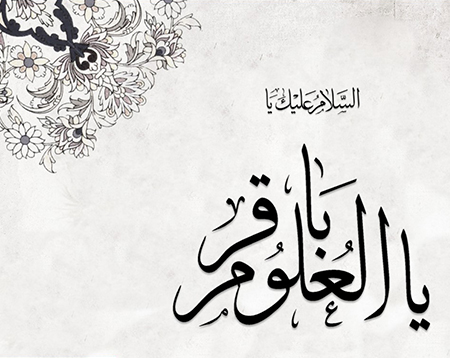 السَّلامُ عَلَيْكَ يا
يا باقر العُلُوم